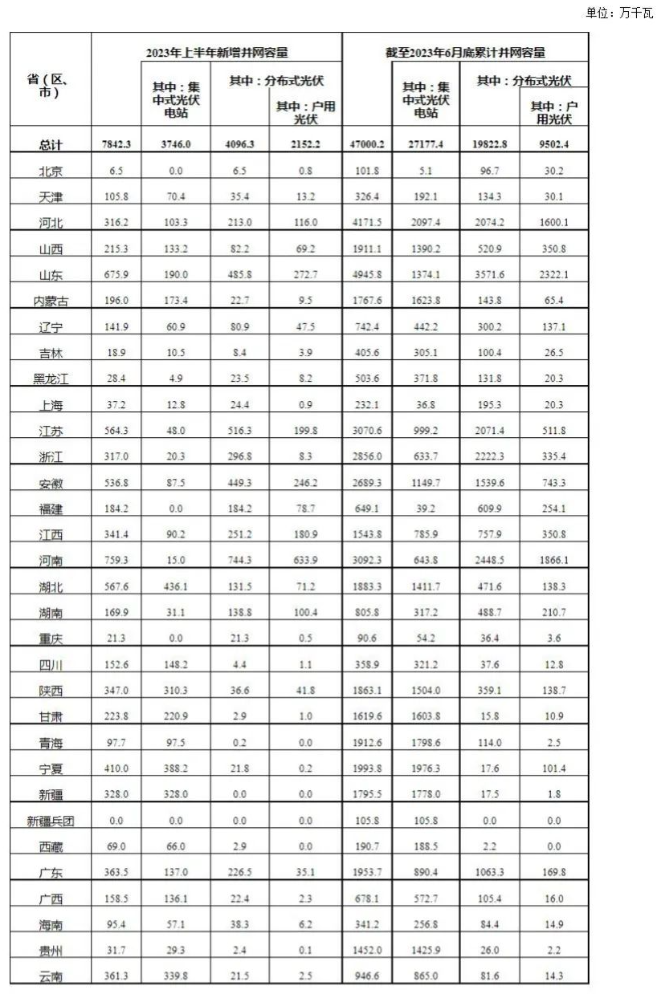 单位：万千瓦
省（区、市） 2023年上半年新增并网容量 截至2023年6月底累计并网容量
其中：集中式光伏电站 其中：分布式光伏 其中：集中式光伏电站 其中：分布式光伏
其中：户用光伏 其中：户用光伏
总计 7842.3 3746.0 4096.3 2152.2 47000.2 27177.4 19822.8 9502.4
北京 6.5 0.0 6.5 0.8 101.8 5.1 96.7 30.2
天津 105.8 70.4 35.4 13.2 326.4 192.1 134.3 30.1
河北 316.2 103.3 213.0 116.0 4171.5 2097.4 2074.2 1600.1
山西 215.3 133.2 82.2 69.2 1911.1 1390.2 520.9 350.8
山东 675.9 190.0 485.8 272.7 4945.8 1374.1 3571.6 2322.1
内蒙古 196.0 173.4 22.7 9.5 1767.6 1623.8 143.8 65.4
辽宁 141.9 60.9 80.9 47.5 742.4 442.2 300.2 137.1
吉林 18.9 10.5 8.4 3.9 405.6 305.1 100.4 26.5
黑龙江 28.4 4.9 23.5 8.2 503.6 371.8 131.8 20.3
上海 37.2 12.8 24.4 0.9 232.1 36.8 195.3 20.3
江苏 564.3 48.0 516.3 199.8 3070.6 999.2 2071.4 511.8
浙江 317.0 20.3 296.8 8.3 2856.0 633.7 2222.3 335.4
安徽 536.8 87.5 449.3 246.2 2689.3 1149.7 1539.6 743.3
福建 184.2 0.0 184.2 78.7 649.1 39.2 609.9 254.1
江西 341.4 90.2 251.2 180.9 1543.8 785.9 757.9 350.8
河南 759.3 15.0 744.3 633.9 3092.3 643.8 2448.5 1866.1
湖北 567.6 436.1 131.5 71.2 1883.3 1411.7 471.6 138.3
湖南 169.9 31.1 138.8 100.4 805.8 317.2 488.7 210.7
重庆 21.3 0.0 21.3 0.5 90.6 54.2 36.4 3.6
四川 152.6 148.2 4.4 1.1 358.9 321.2 37.6 12.8
陕西 347.0 310.3 36.6 41.8 1863.1 1504.0 359.1 138.7
甘肃 223.8 220.9 2.9 1.0 1619.6 1603.8 15.8 10.9
青海 97.7 97.5 0.2 0.0 1912.6 1798.6 114.0 2.5
宁夏 410.0 388.2 21.8 0.2 1993.8 1976.3 17.6 101.4
新疆 328.0 328.0 0.0 0.0 1795.5 1778.0 17.5 1.8
新疆兵团 0.0 0.0 0.0 0.0 105.8 105.8 0.0 0.0
西藏 69.0 66.0 2.9 0.0 190.7 188.5 2.2 0.0
广东 363.5 137.0 226.5 35.1 1953.7 890.4 1063.3 169.8
广西 158.5 136.1 22.4 2.3 678.1 572.7 105.4 16.0
海南 95.4 57.1 38.3 6.2 341.2 256.8 84.4 14.9
贵州 31.7 29.3 2.4 0.1 1452.0 1425.9 26.0 2.2
云南 361.3 339.8 21.5 2.5 946.6 865.0 81.6 14.3